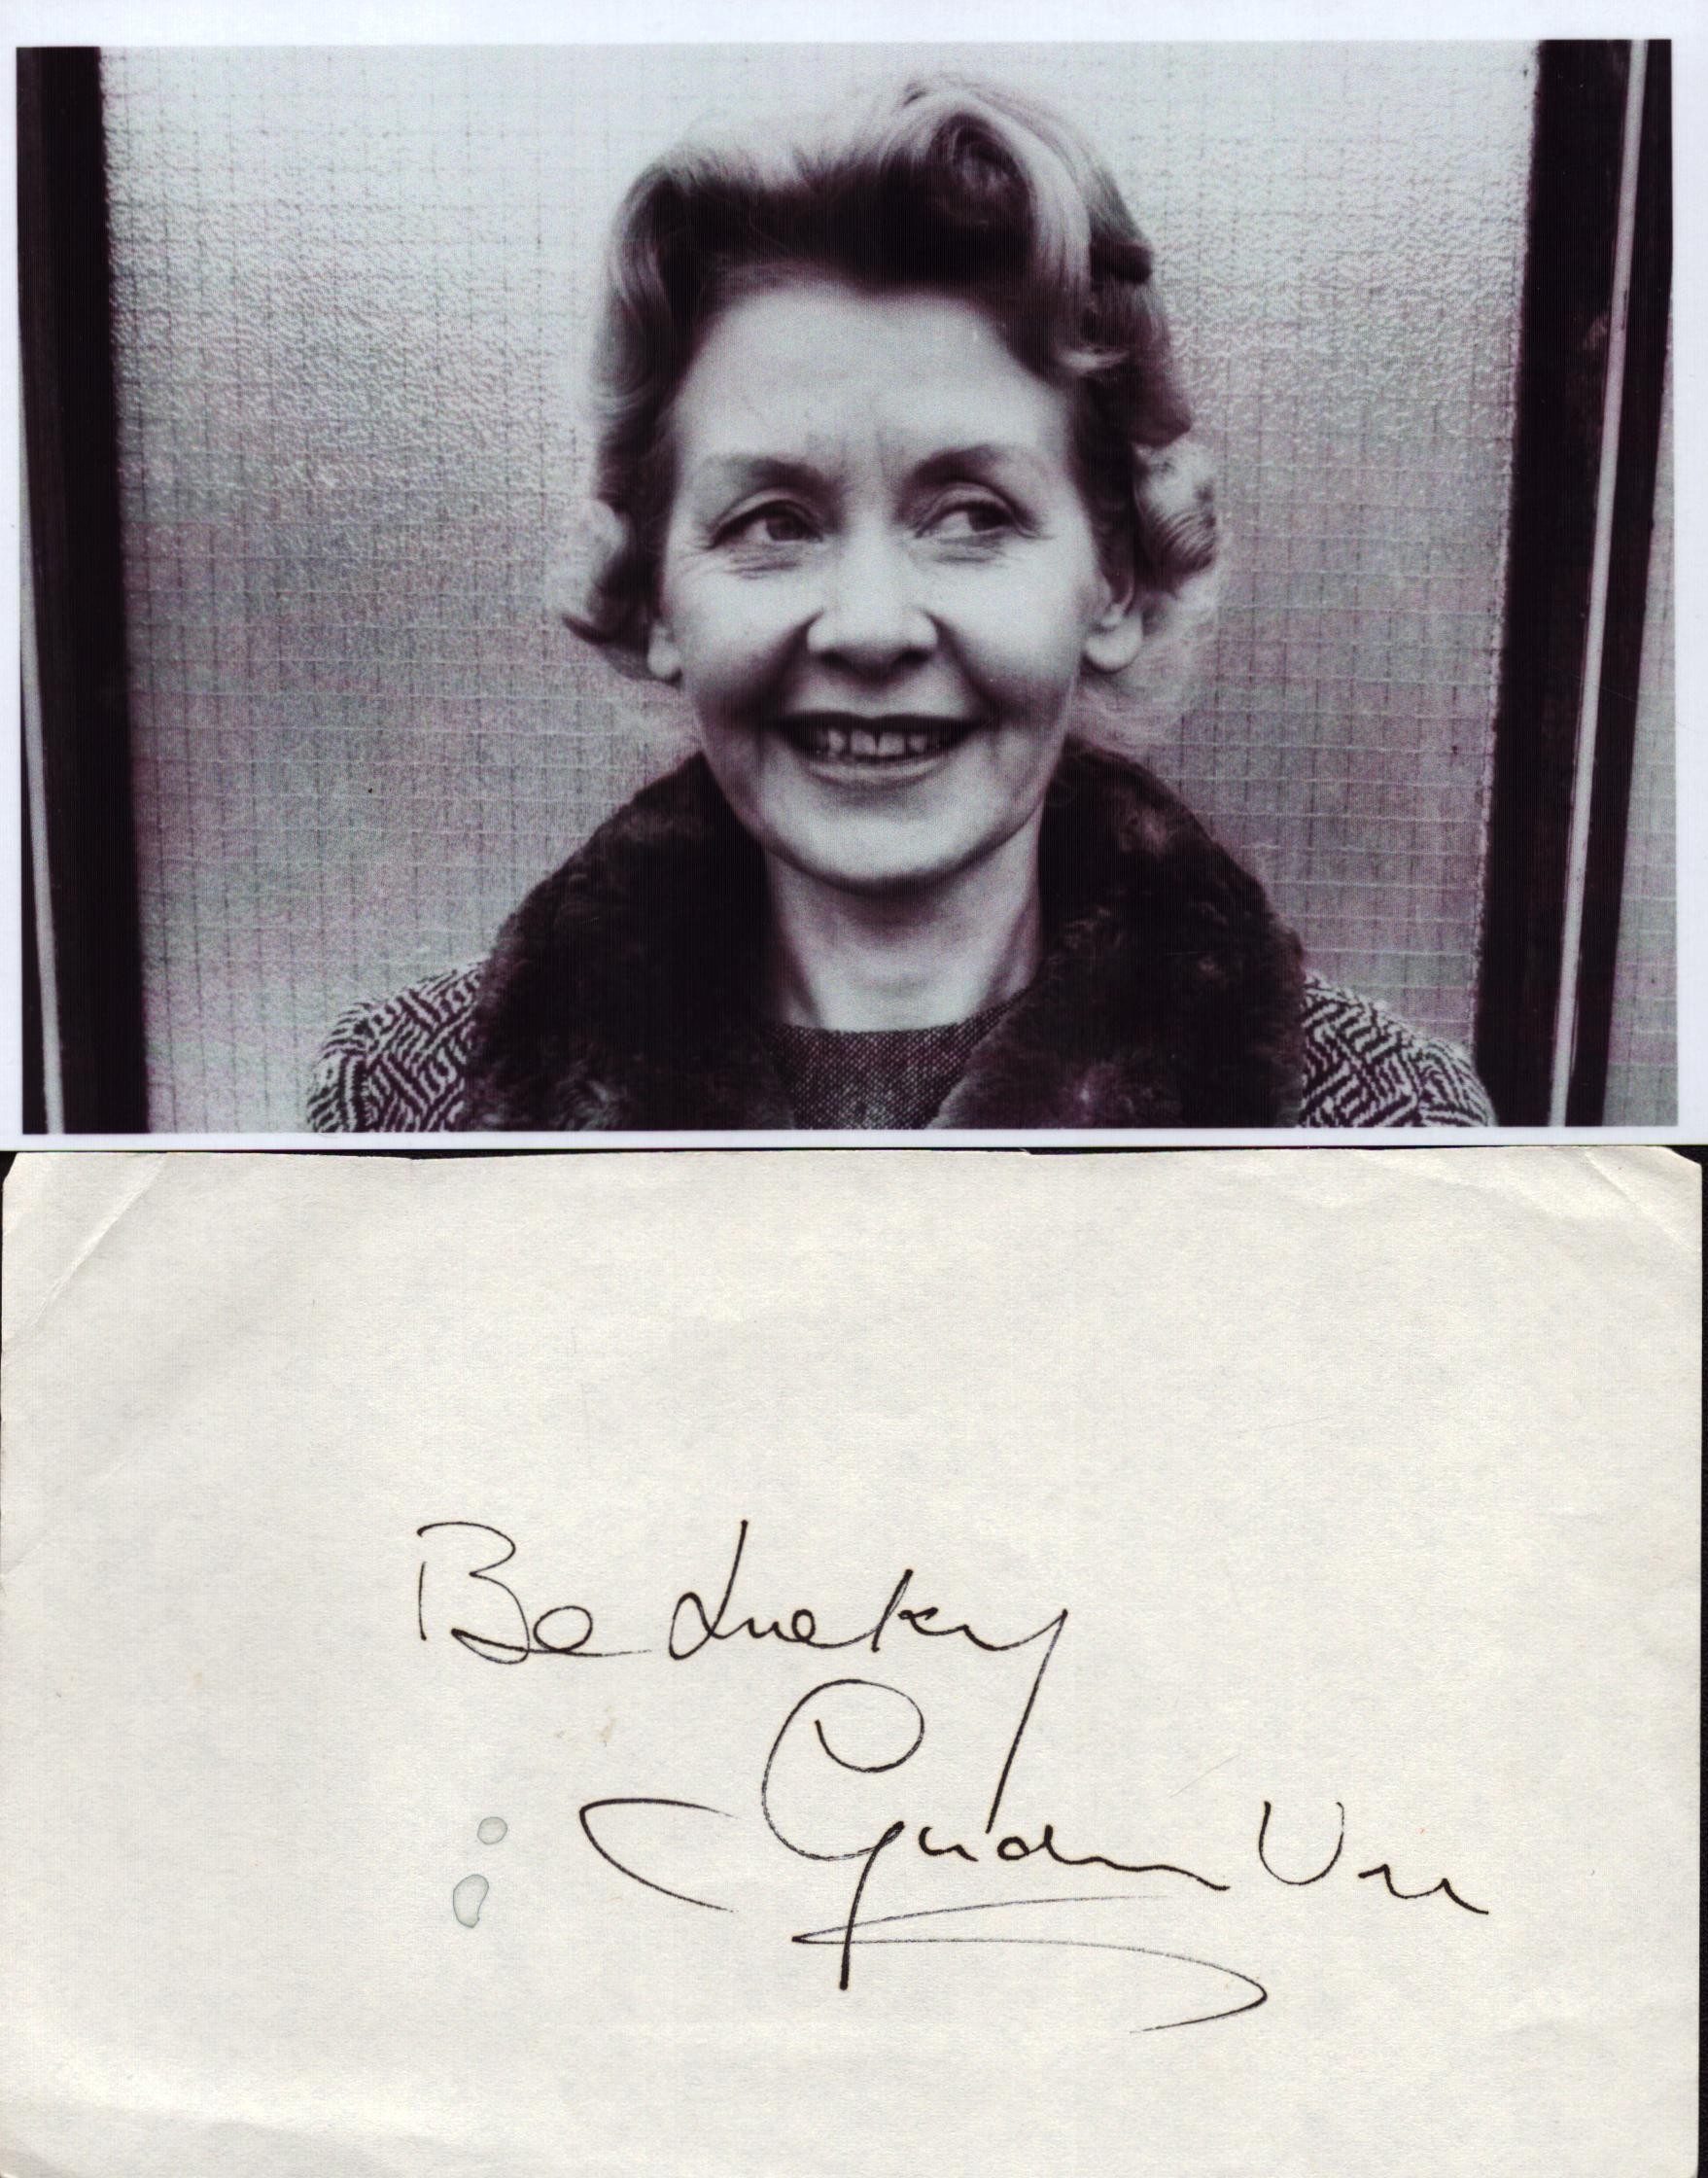 Be Lucky
Gudrun Ure